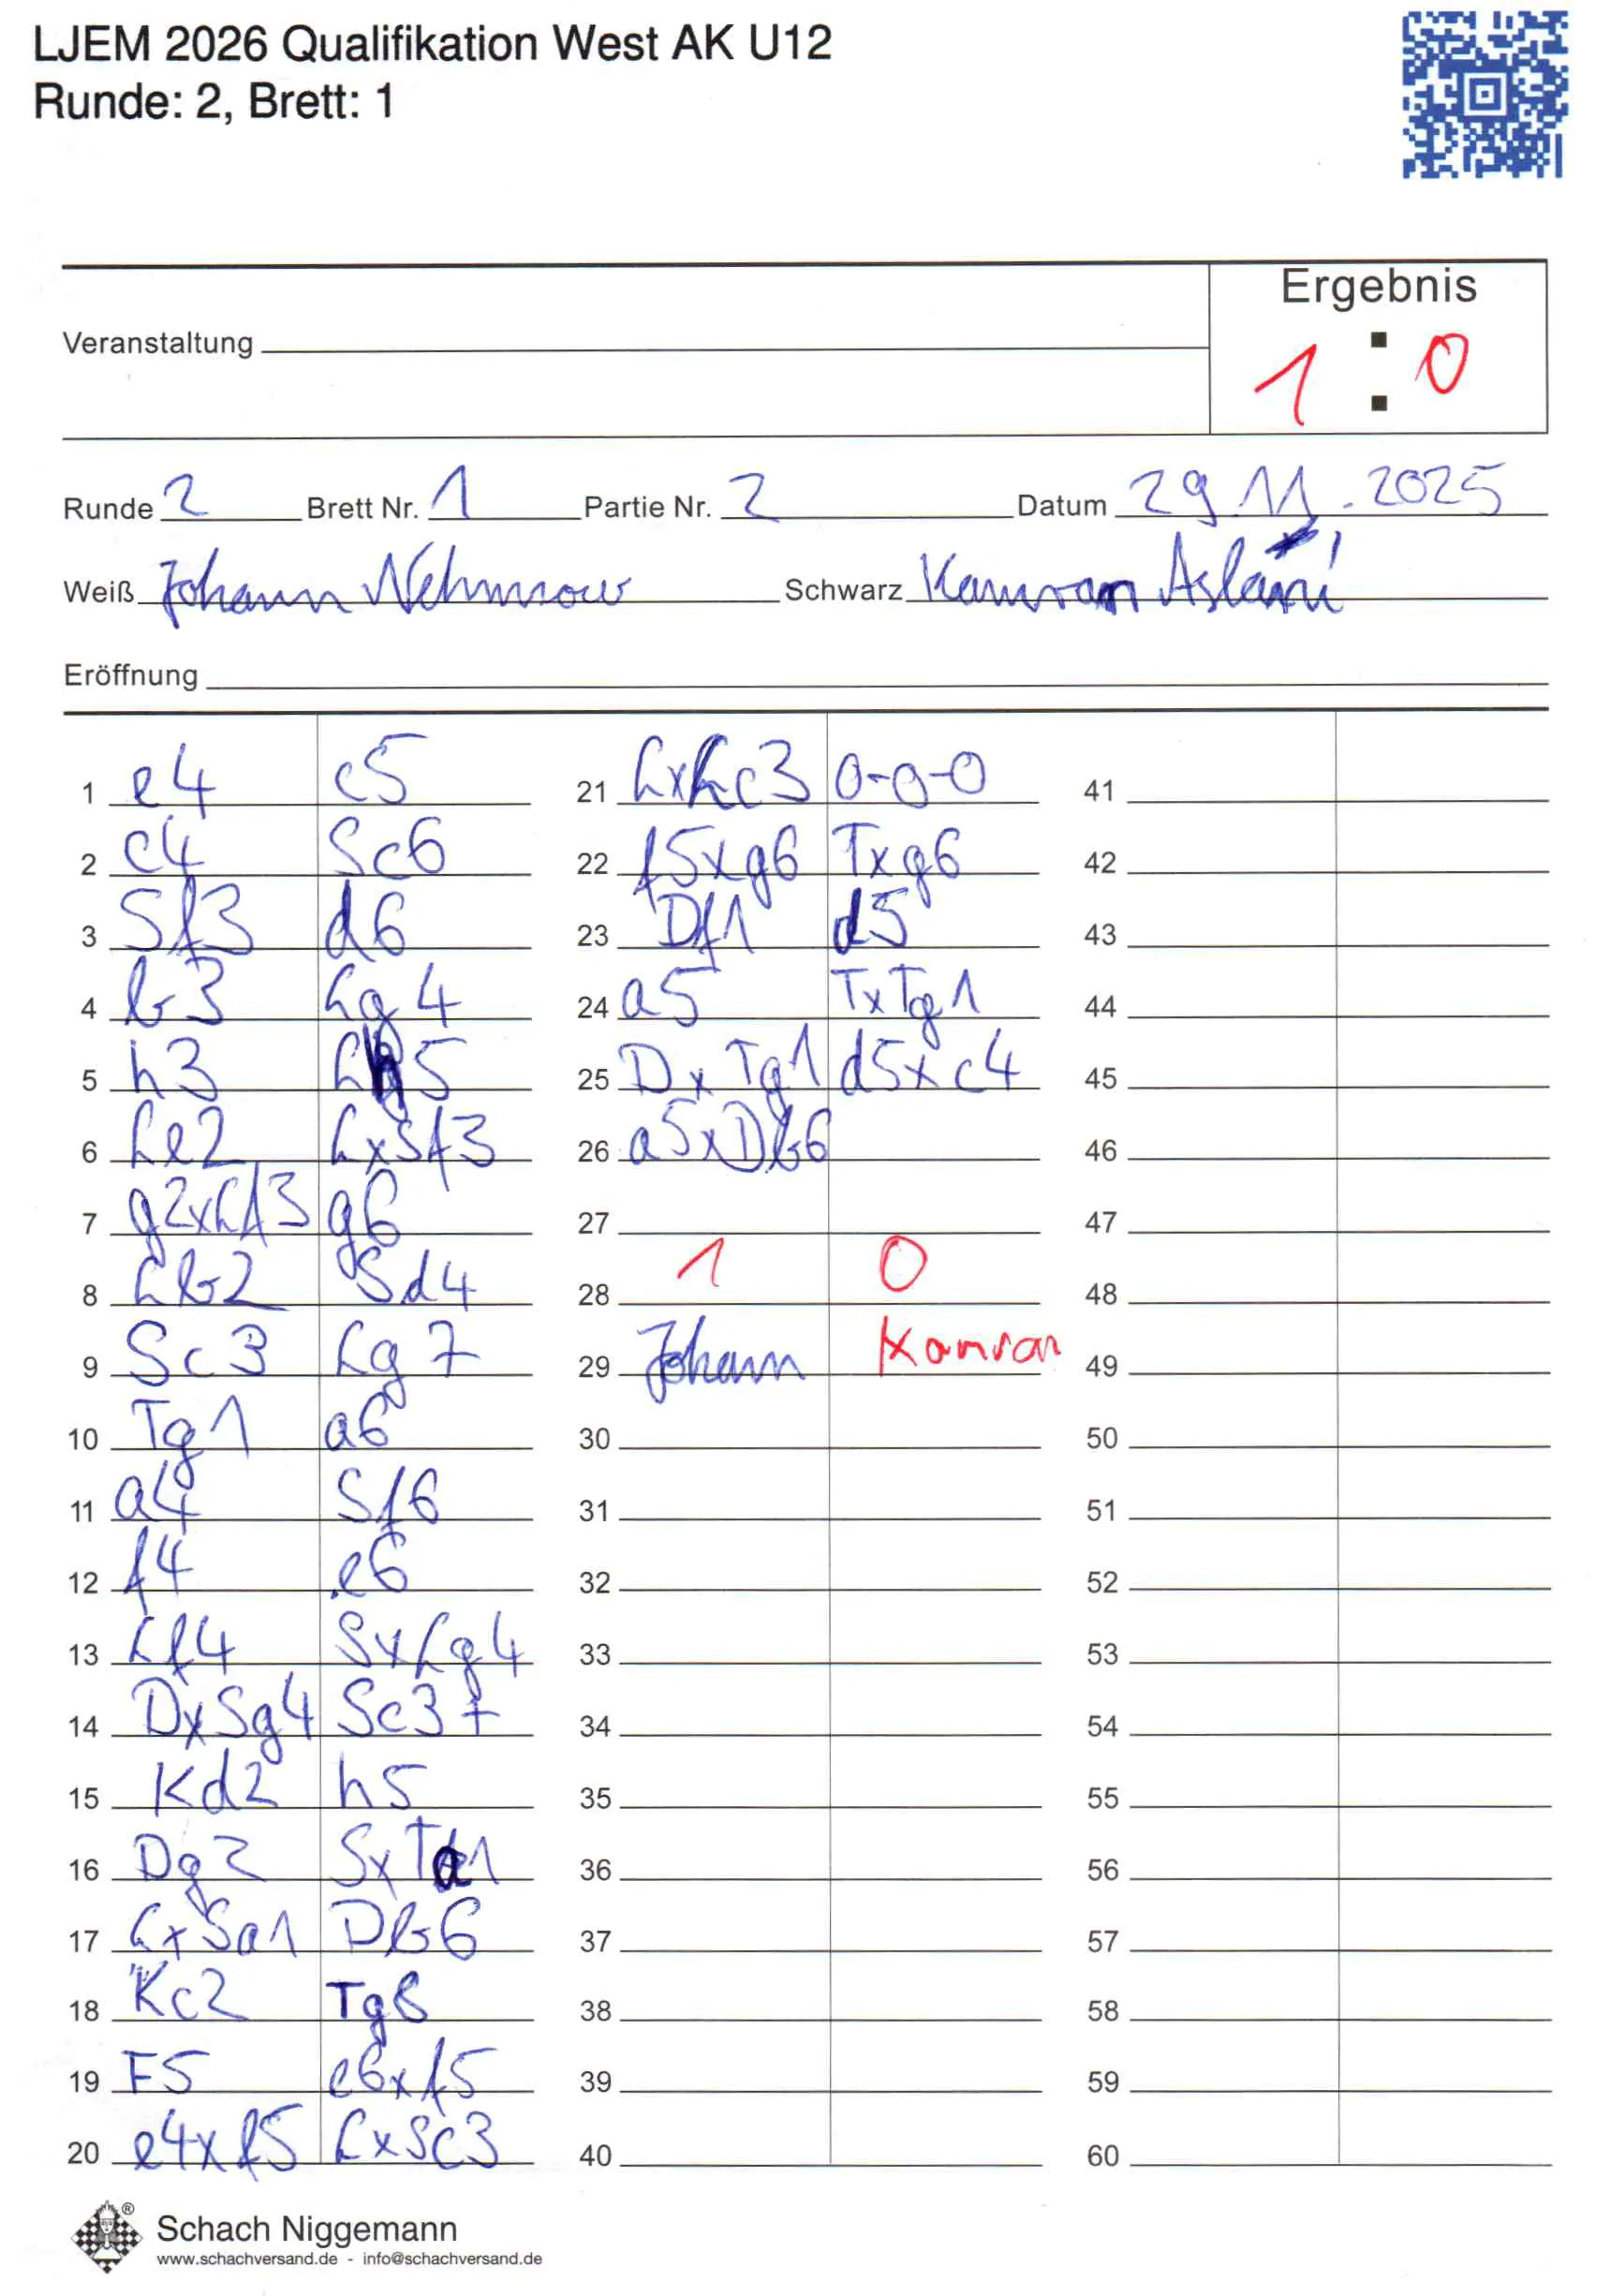 LJEM 2026 Qualifikation West AK U12
Runde: 2, Brett: 1
Ergebnis
1 : 0
Veranstaltung
Runde 2 Brett Nr. 1 Partie Nr. 2 Datum 29.11.2025
Weiß Johann Nehmsow Schwarz Kamran Aslani
Eröffnung
1 e4 c5
2 c4 Sc6
3 Sf3 d6
4 b3 Lg4
5 h3 Lh5
6 Le2 LxSf3
7 g2xLf3 g6
8 Lb2 Sd4
9 Sc3 Lg7
10 Tg1 a6
11 a4 Sf6
12 f4 e6
13 Lf4 SxLg4
14 DxSg4 Sc3+
15 Kd2 h5
16 Dg2 SxTa1
17 LxSa1 Db6
18 Kc2 Tg8
19 F5 e6xf5
20 e4xf5 LxSc3
21 LxLc3 0-0-0
22 f5xg6 Txg6
23 Df1 d5
24 a5 TxTg1
25 DxTg1 d5xc4
26 a5xDb6
27
28 1 0
29 Johann Kamran
30
31
32
33
34
35
36
37
38
39
40
41
42
43
44
45
46
47
48
49
50
51
52
53
54
55
56
57
58
59
60
Schach Niggemann
www.schachversand.de - info@schachversand.de